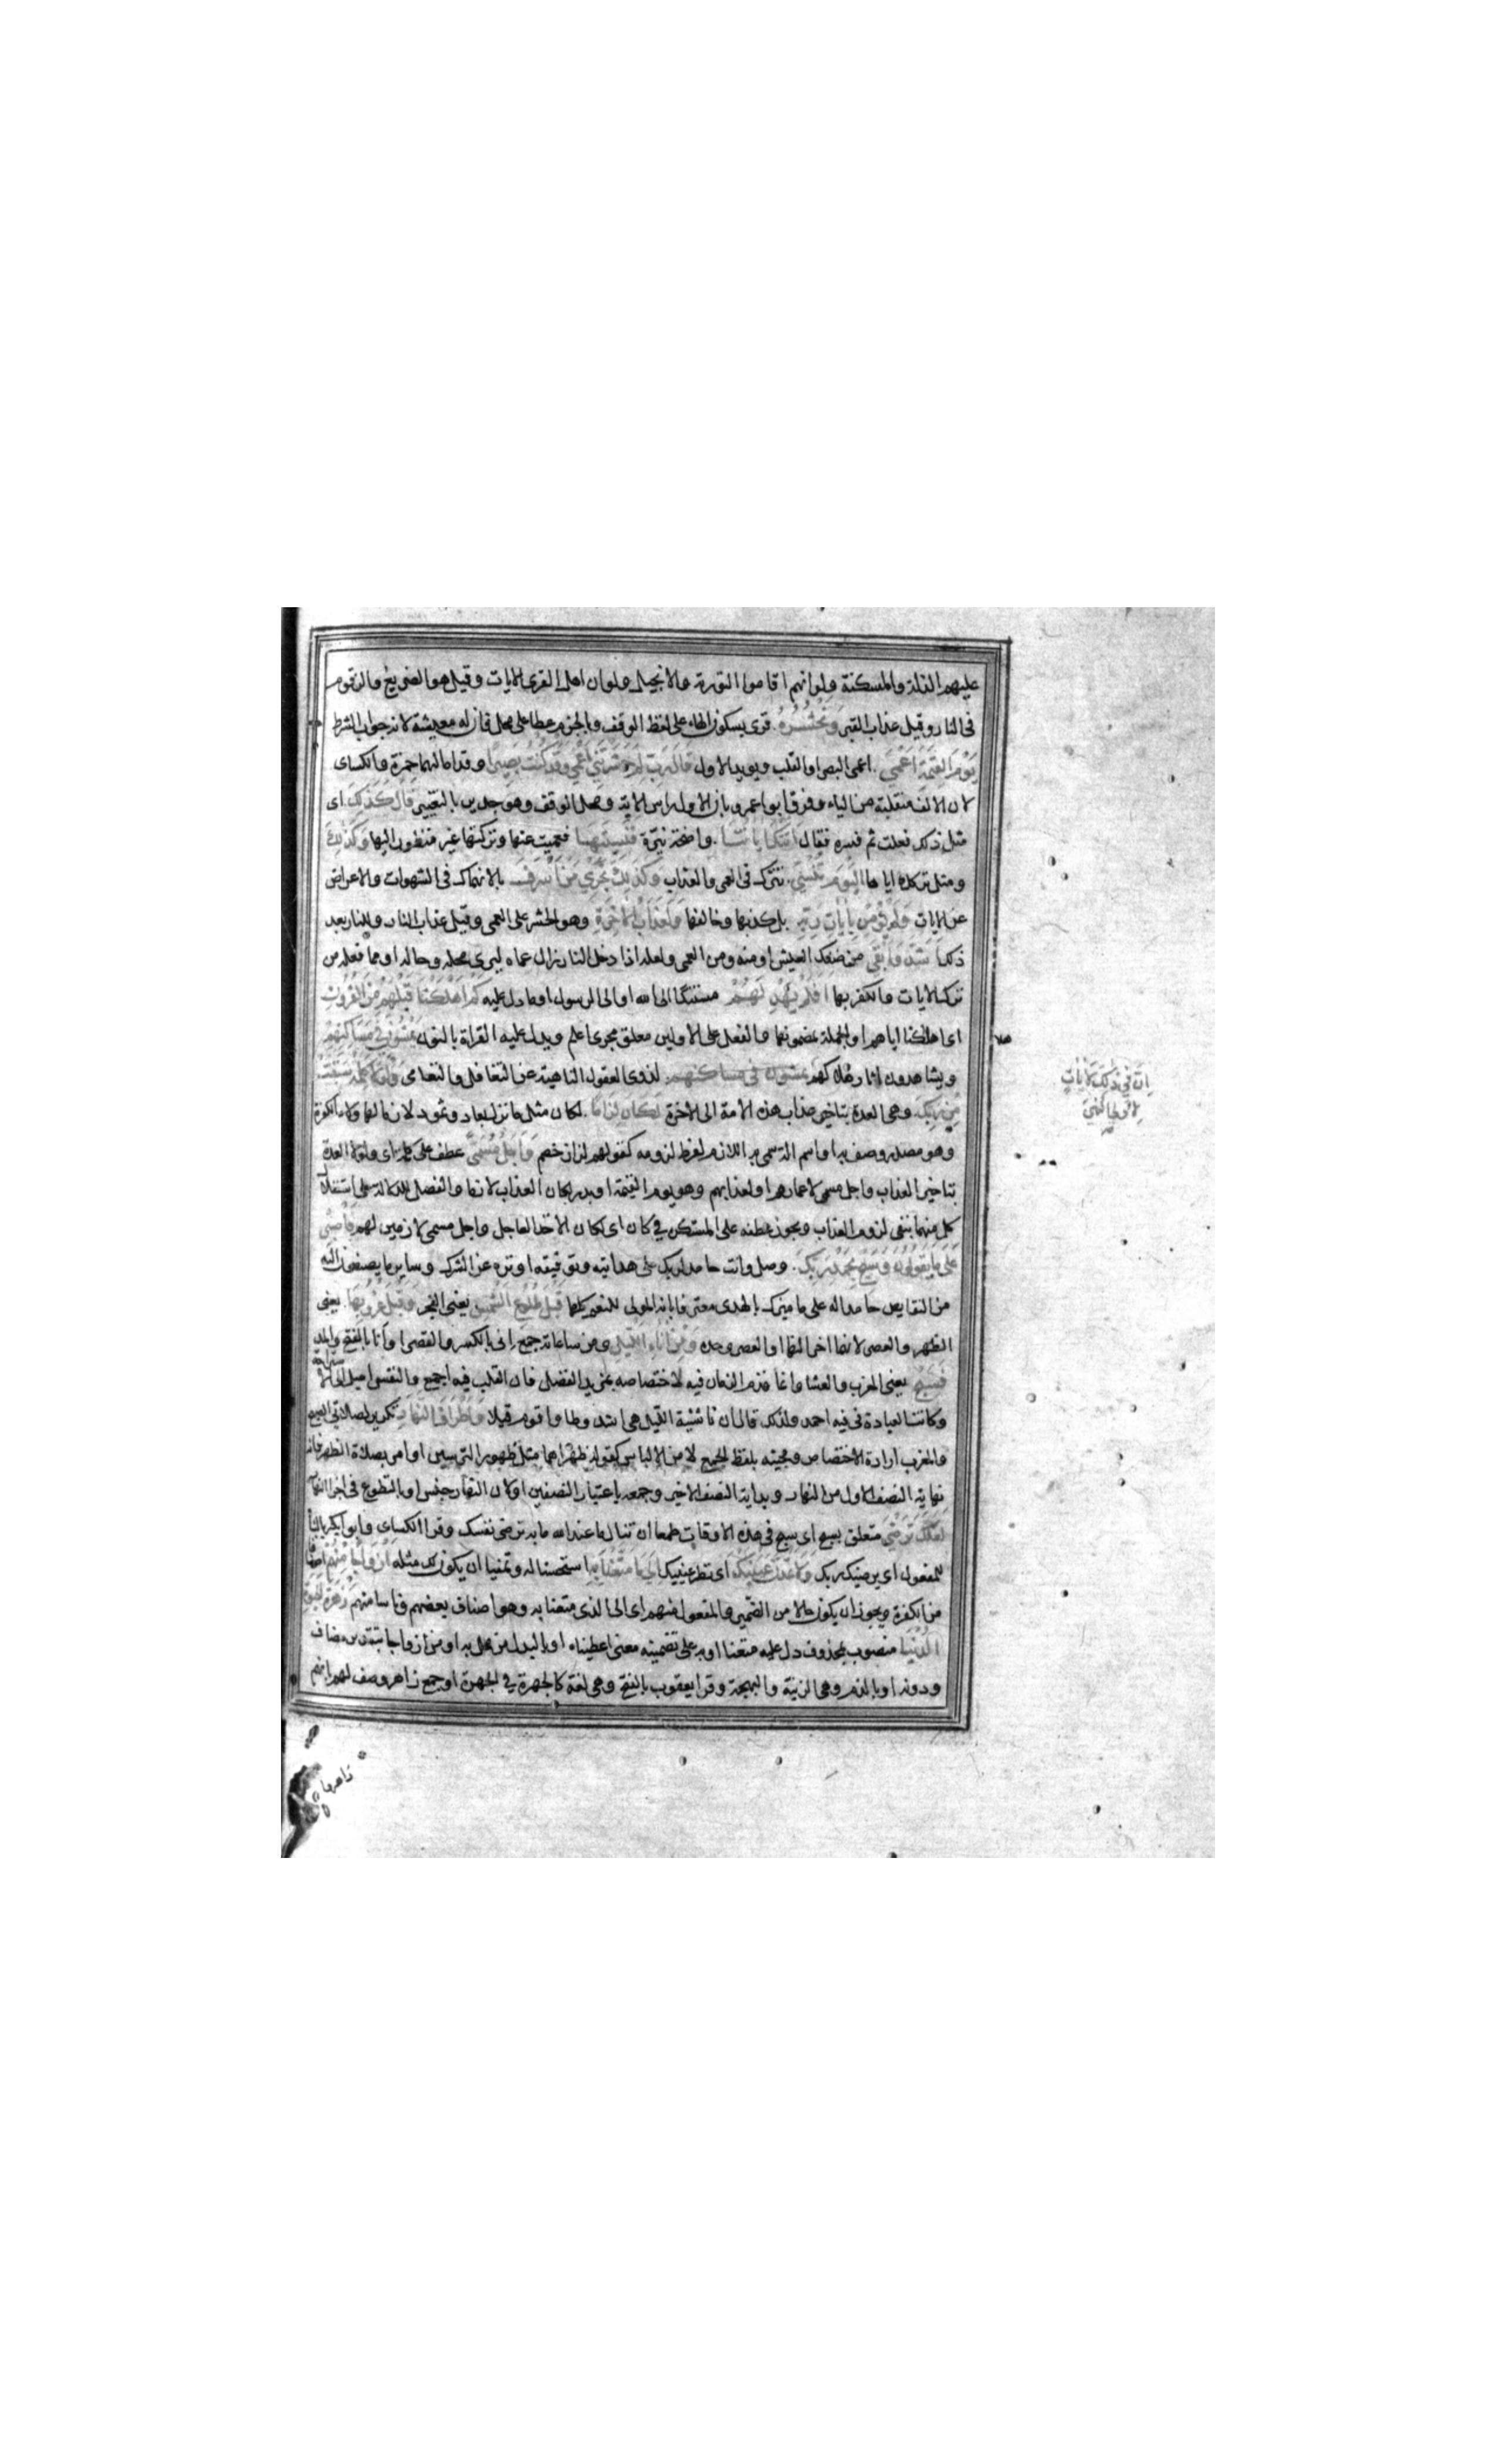 عليهم الذلة والمسكنة ولوانهم اقاموا التورية والانجيل ولوان اهل القرى الايات وقيل هو الضريع والزقوم
فى النار وقيل عذاب القبر وَنَحْشُرُهُ قرى بسكون الهاء على لفظ الوقف وبالجزم عطفا على محل فان له معيشة لانه جواب الشرط
يَوْمَ القِيٰمَةِ اَعْمٰى اعمى البصر او القلب ويويد الاول قَالَ رَبِّ لِمَ حَشَرْتَنِي اَعْمٰى وَقَدْ كُنْتُ بَصِيرًا وقد امالهما حمزة والكساى
لان الالف منقلبة من الياء وفرق ابو اعمرو بان الاول راس الاية ومحل الوقف وهو جدير بالتغيير قَالَ كَذٰلِكَ اى
مثل ذلك فعلت ثم فسره فقال اَتَتْكَ اٰيَاتُنَا واضحة نيرة فَنَسِيتَهَا فعميت عنها وتركتها غير منظور اليها وَكَذٰلِكَ
ومثل تركك اياها اليَوْمَ تُنْسٰى تترك فى العمى والعذاب وَكَذٰلِكَ نَجْزِي مَنْ اَسْرَفَ بالانهماك فى الشهوات والاعراض
عن الايات وَلَمْ يُؤْمِنْ بِاٰيَاتِ رَبِّهِ بل كذبها وخالفها وَلَعَذَابُ الْاٰخِرَةِ وهو الحشر على العمى وقيل عذاب النار وللنار بعد
ذلك اَشَدُّ وَاَبْقٰى من ضنك العيش او منه ومن العمى ولعله اذا دخل النار زال عماه ليرى محله وحاله او مما فعله من
ترك الايات والكفر بها اَفَلَمْ يَهْدِ لَهُمْ مسندا الى الله او الى الرسول او ما دل عليه كَمْ اَهْلَكْنَا قَبْلَهُمْ مِنَ القُرُونِ
اى اهلاكنا اياهم او الجملة بمضمونها والفعل على الاولين معلق مجرى اعلم ويدل عليه القراة بالنون يَمْشُونَ فِي مَسَاكِنِهِمْ
ويشاهدون اثار هلاكهم يمشون فى مساكنهم لذوى العقول الناهية عن التغافل والتعامى وَلَوْلَا كَلِمَةٌ سَبَقَتْ
مِنْ رَبِّكَ وهى العدة بتاخير عذاب هذه الامة الى الاخرة لَكَانَ لِزَامًا لكان مثل ما نزل بعاد وثمود لازما لهؤلاء الكفرة
وهو مصدر وصف به او اسم الة سمى به اللازم لفرط لزومه كقولهم لزاز خصم وَاَجَلٌ مُسَمًّى عطف على كلمة اى ولولا العدة
بتاخير العذاب واجل مسمى لاعمارهم او لعذابهم وهو يوم القيمة او بدر لكان العذاب لازما والفصل للدلالة على استقلال
كل منهما بنفى لزوم العذاب ويجوز عطفه على المستكن فى كان اى لكان الاخذ العاجل واجل مسمى لازمين لهم فَاصْبِرْ
عَلٰى مَا يَقُولُونَ وَسَبِّحْ بِحَمْدِ رَبِّكَ وصل وانت حامد لربك على هدايته وتوفيقه او نزهه عن الشرك وساير ما يصفون اليه
من النقايص حامدا له على ما ميزك بالهدى معترفا بانه المولى للنعم كلها قَبْلَ طُلُوعِ الشَّمْسِ يعنى الفجر وَقَبْلَ غُرُوبِهَا يعنى
الظهر والعصر لانهما اخر النهار او العصر وحده وَمِنْ اٰنَاءِ اللَّيْلِ ومن ساعاته جمع اِنى بالكسر والقصر او اَنا بالفتح والمد
فَسَبِّحْ يعنى المغرب والعشا وانما قدم الزمان فيه لاختصاصه بمزيد الفضل فان القلب فيه اجمع والنفس اميل الى الاستراحة
وكانت العبادة فيه احمد ولذلك قال ان ناشئة الليل هى اشد وطا واقوم قيلا وَاَطْرَافَ النَّهَارِ تكرير لصلاتى الصبح
والمغرب ارادة الاختصاص ومجيئه بلفظ الجمع لامن الالباس كقوله ظهراهما مثل ظهور الترسين او امر بصلاة الظهر فانه
نهاية النصف الاول من النهار وبداية النصف الاخير وجمعه باعتبار النصفين او لان النهار جنس او بالتطوع فى اجزا النهار
لَعَلَّكَ تَرْضٰى متعلق بسبح اى سبح فى هذه الاوقات طمعا ان تنال ما عند الله ما به ترضى نفسك وقرا الكساى وابو ابكر بالبنا
للمفعول اى يرضيك ربك وَلَا تَمُدَّنَّ عَيْنَيْكَ اى نظر عينيك اِلٰى مَا مَتَّعْنَا بِهِ استحسانا له وتمنيا ان يكون لك مثله اَزْوَاجًا مِنْهُمْ اصنافا
من الكفرة ويجوز ان يكون حالا من الضمير والمفعول منهم اى الى الذى متعنا به وهو اصناف بعضهم وناسا منهم زَهْرَةَ الحَيٰوةِ
الدُّنْيَا منصوب بمحذوف دل عليه متعنا او به على تضمينه معنى اعطيناه او بالبدل من محل به او من ازواجا بتقدير مضاف
ودونه او بالذم وهى الزينة والبهجة وقرا يعقوب بالفتح وهى لغة كالجهرة فى الجهرة او جمع زاهر وصف لهم بانهم
اِنَّ فِي ذٰلِكَ لَاٰيَاتٍ
لِاُولِي النُّهٰى
صح
زاهروا